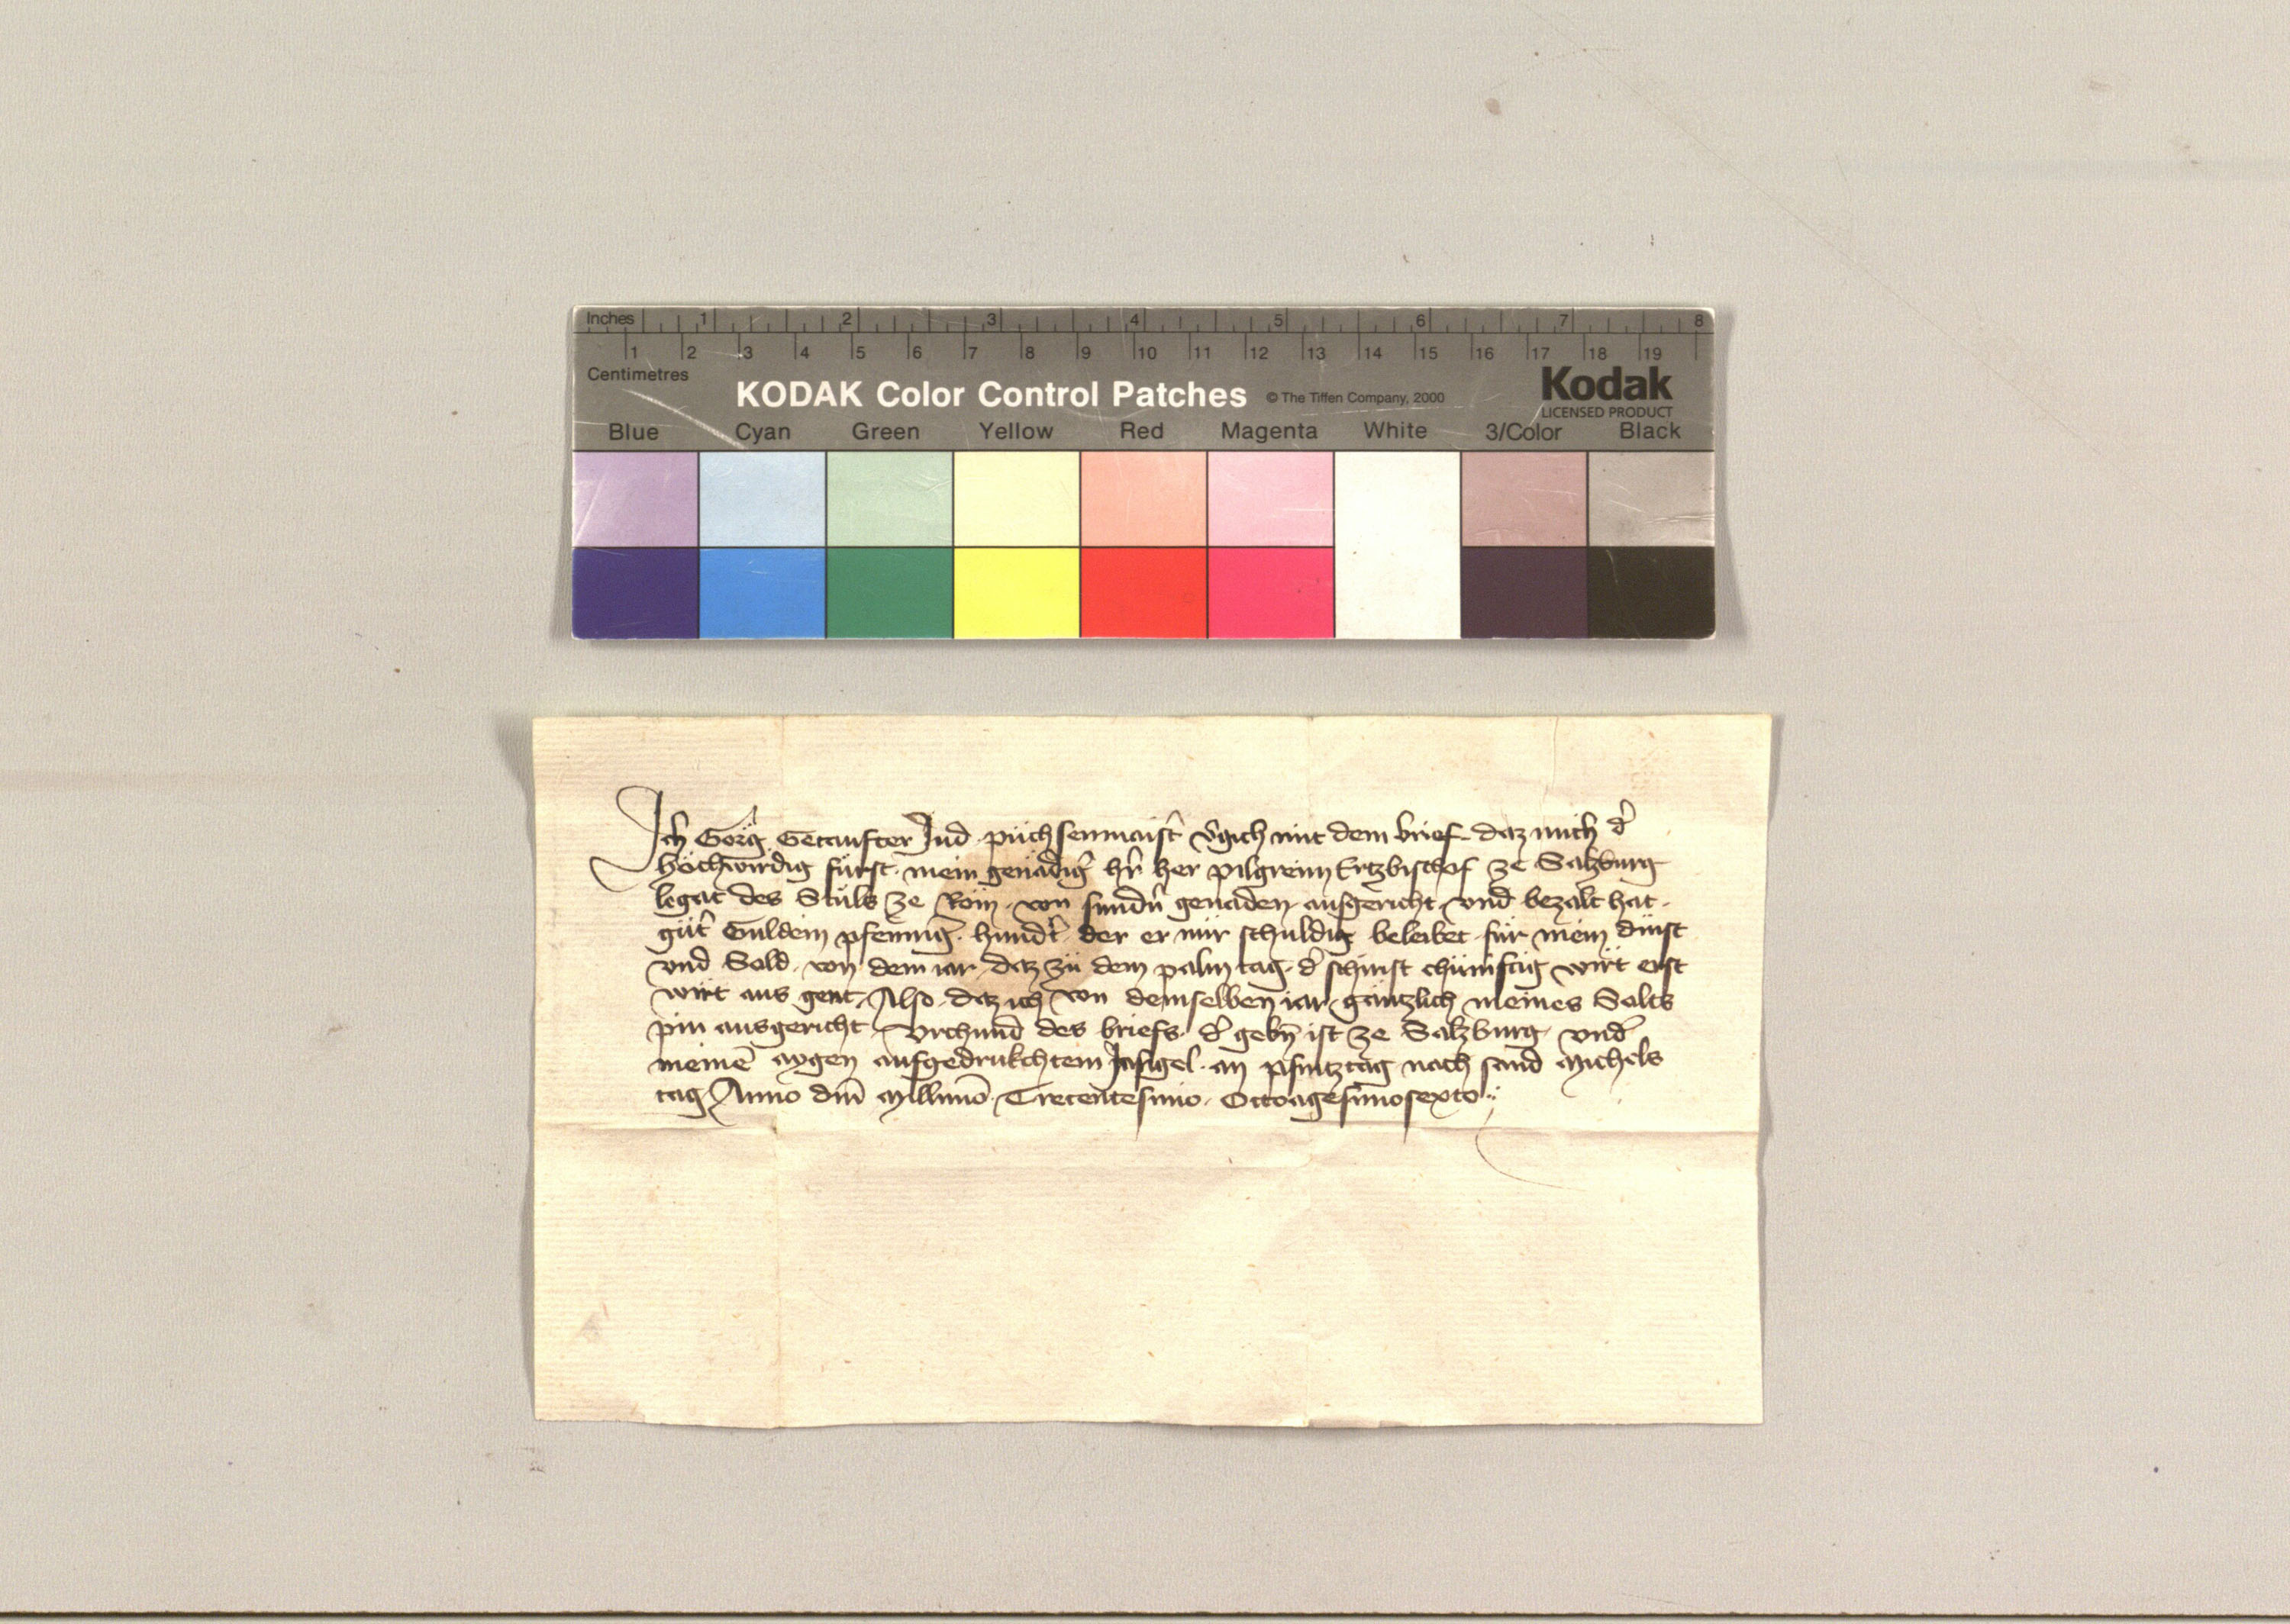 Inches 1 2 3 4 5 6 7 8
1 2 3 4 5 6 7 8 9 10 11 12 13 14 15 16 17 18 19
Centimetres
KODAK Color Control Patches © The Tiffen Company, 2000 Kodak
LICENSED PRODUCT
Blue Cyan Green Yellow Red Magenta White 3/Color Black
Ich Görig Getaufter Jud püchsenmaist̉ v̉gich mit dem brief daz mich d̉
höchwirdig fürst mein genädig̉ h̉r her pilgreim Ertzbischof ze Salzburg
legat des Stůls ze Röm von sund̉n genaden ausgericht vnd bezalt hat
gůt̉ Guldein pfennig̉ hund̉t der er mir schuldig beleibet für mein dinst
vnd Sold von dem iar daz zů dem palm tag d̉ schirist chümftig wirt erst
wirt aus gent Also daz ich von demselben iar gäntzlich meines Solts
pin ausgericht vrchund des briefs d̉ gebn̄ ist ze Salzburg vnd̉
meinē aygen aufgedrukchtem Insigel an pfintztag nach sand Michels
tag Anno dn̄i Millm̄o Trecentesimo Octoagesimosexto